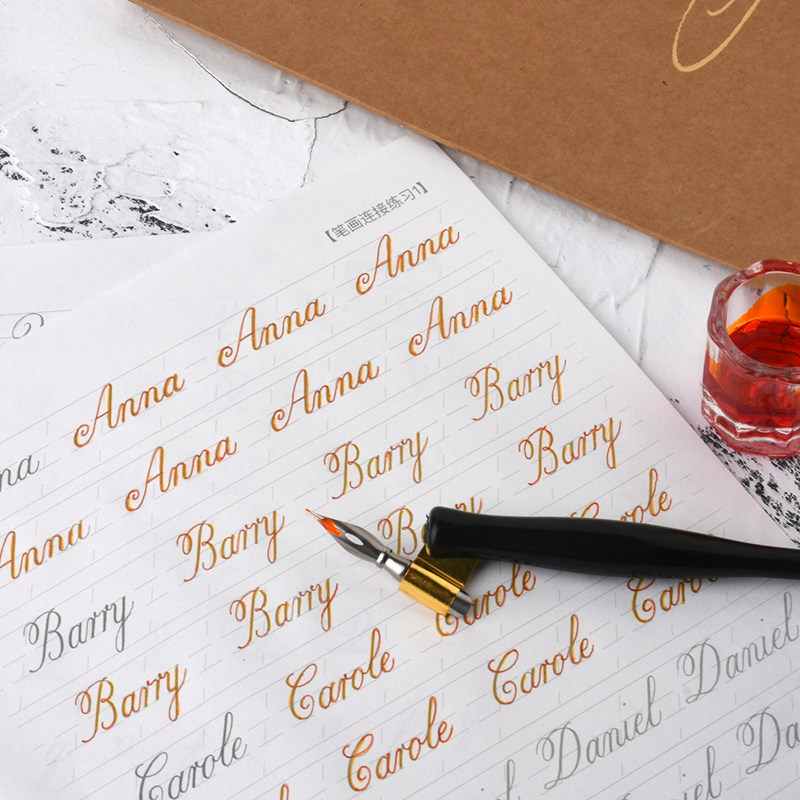 【笔画连接练习1】
Anna Anna Anna
Anna Anna Anna Anna
Barry Barry Barry Barry
Barry Barry Barry
Carole Carole Carole Carole
Carole Carole
Daniel Daniel